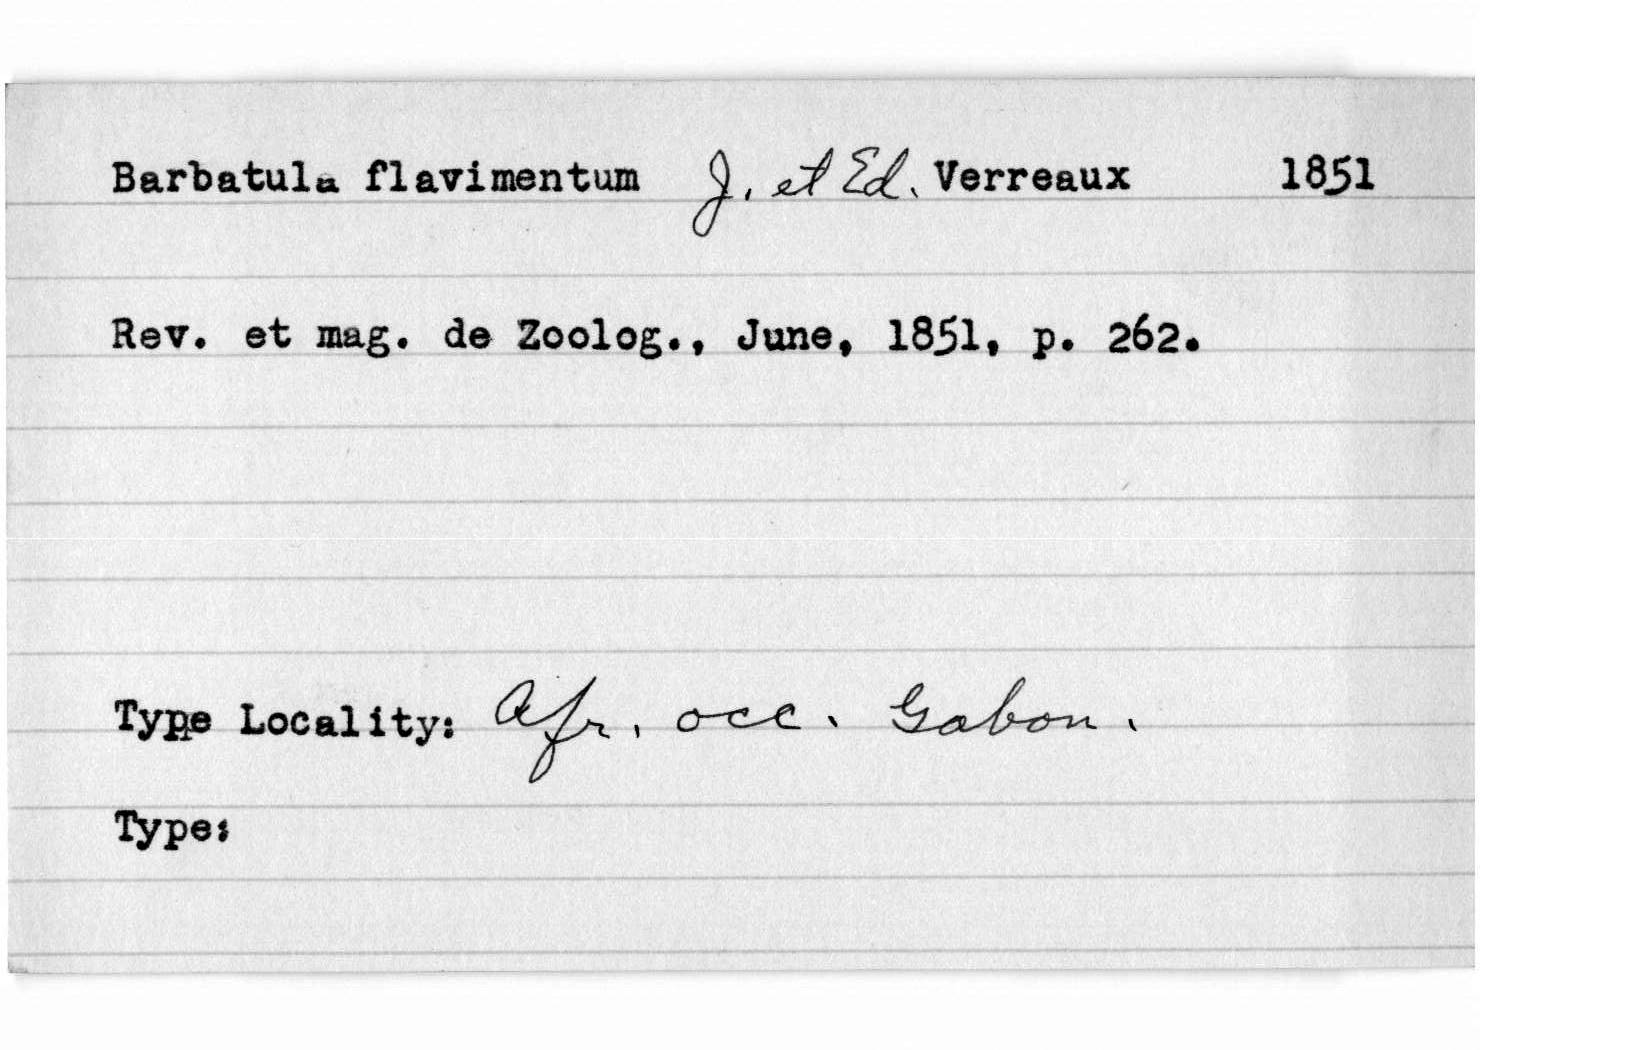 Barbatula flavimentum J. et Ed. Verreaux 1851
Rev. et mag. de Zoolog., June, 1851, p. 262.
Type Locality: Afr. occ. Gabon.
Type: